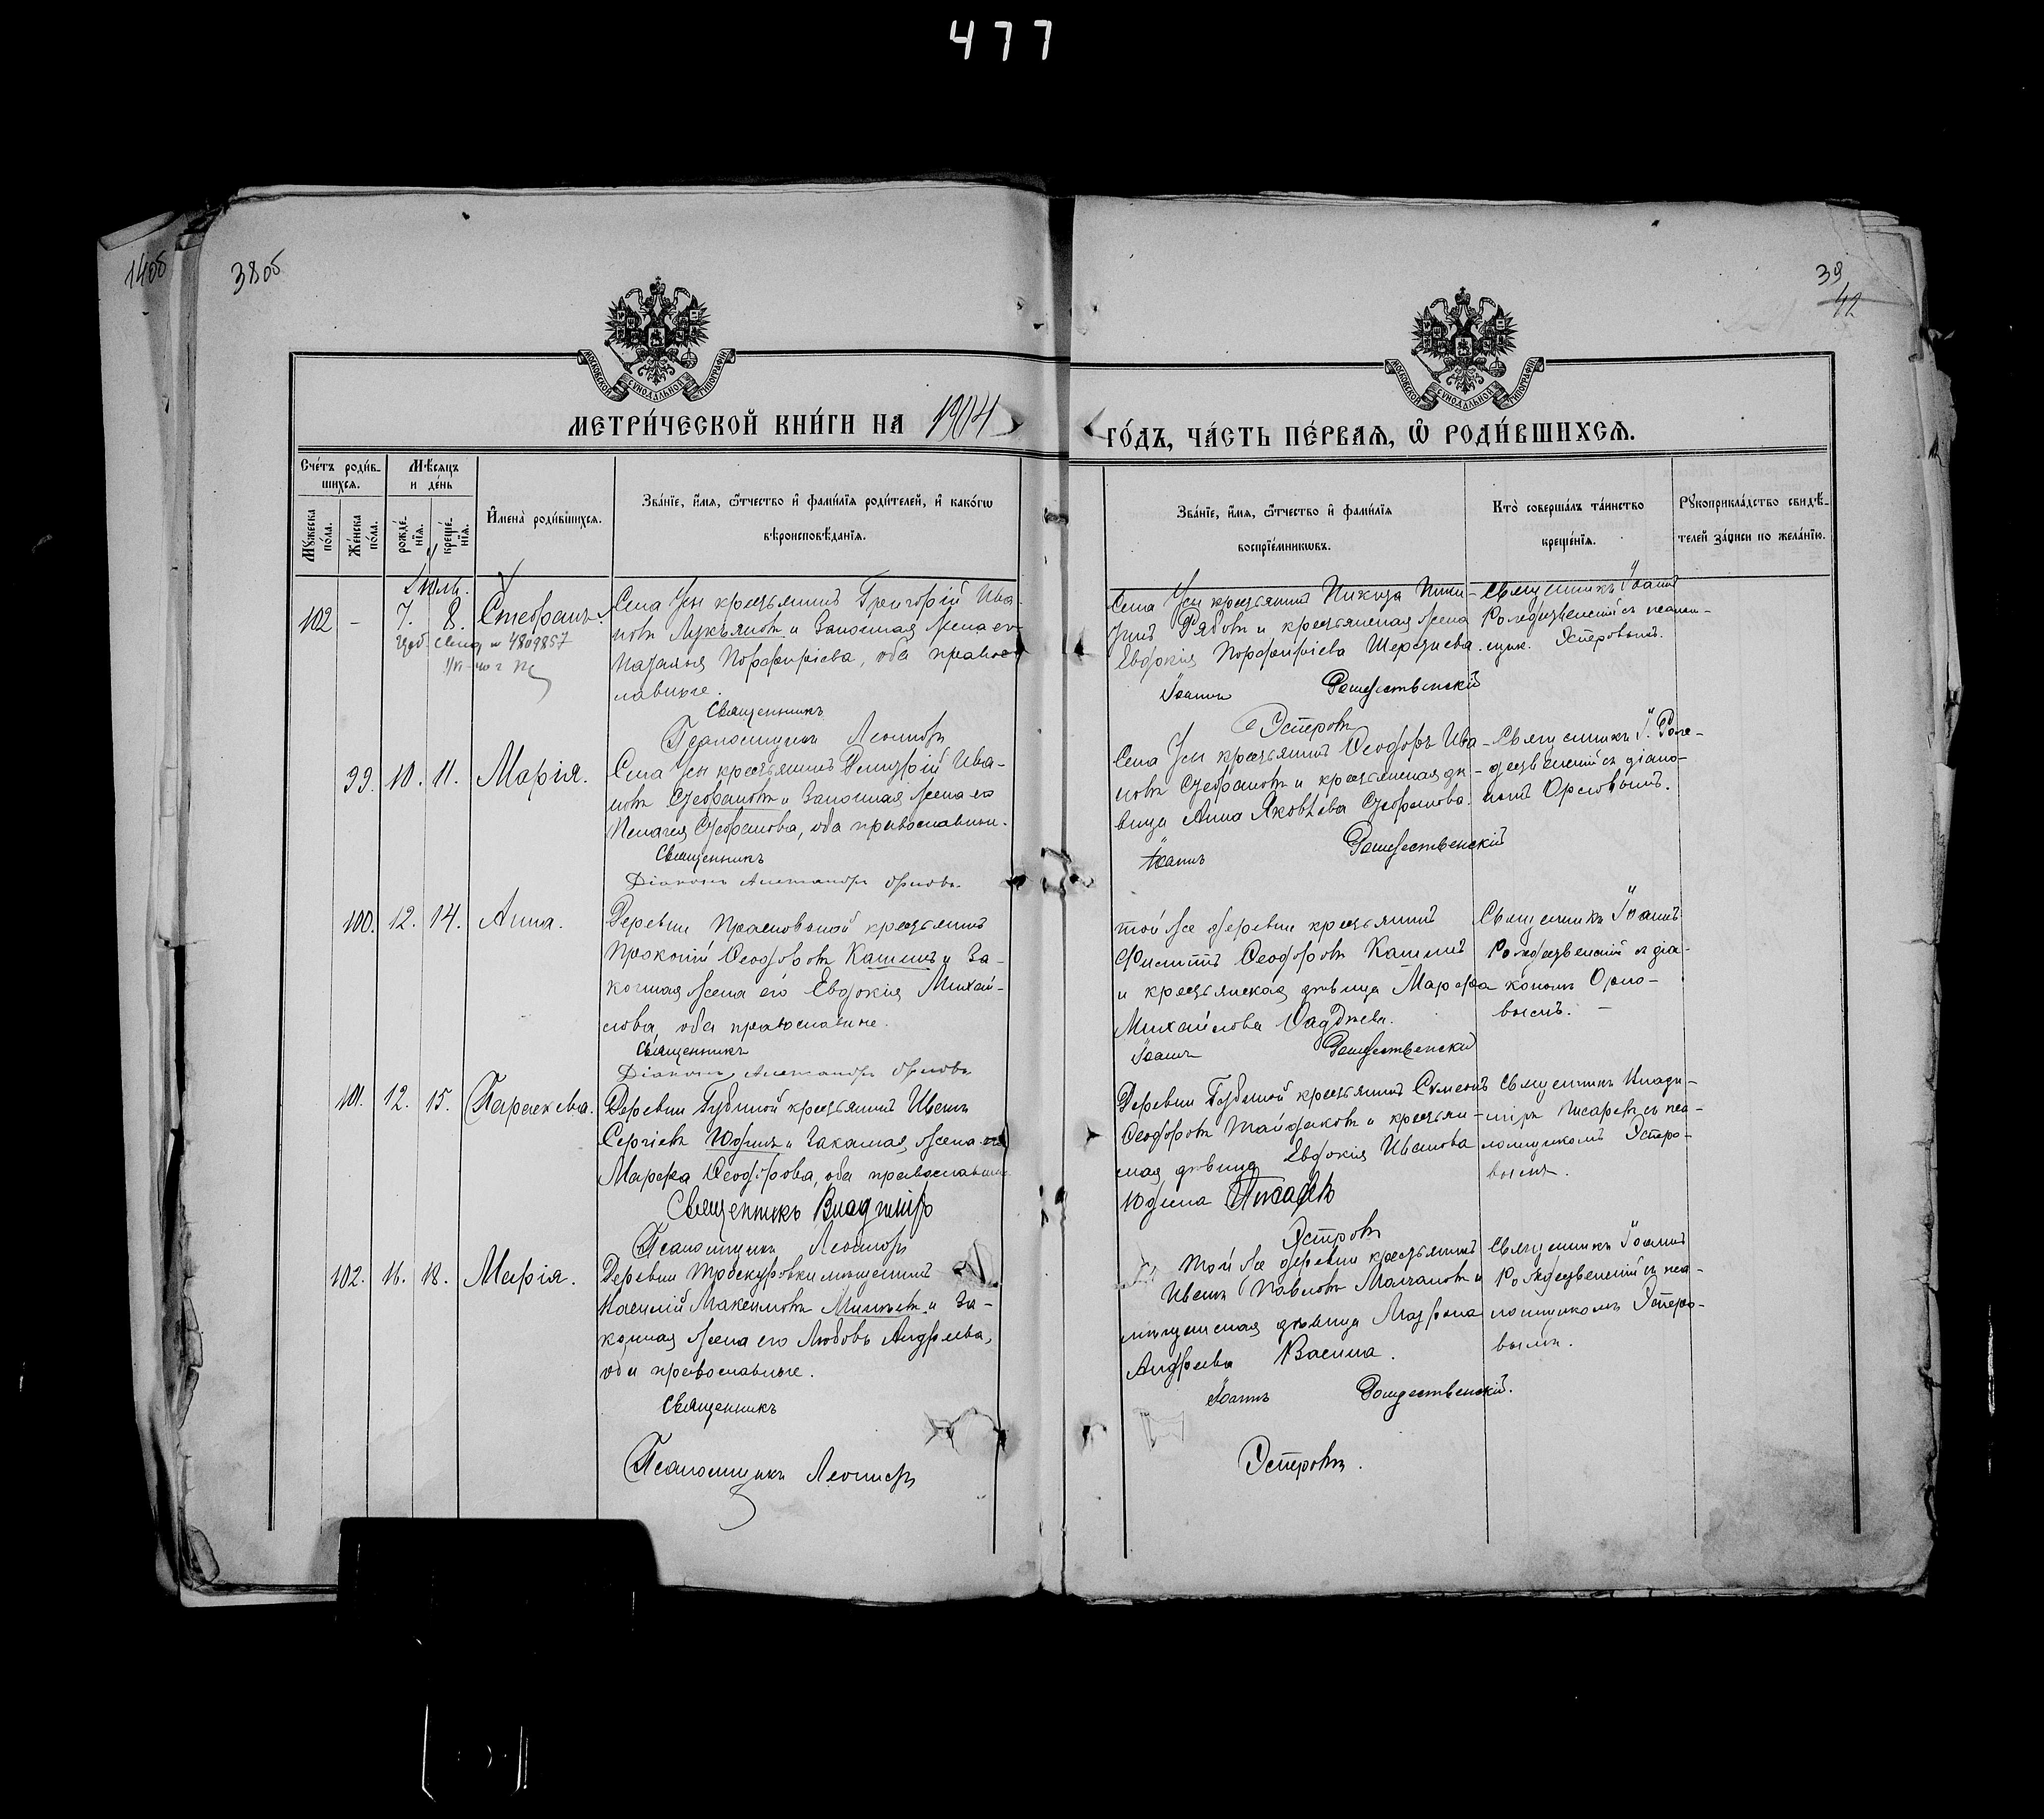 477
140б
38об
39
42
МОСКОВСКОЙ СУНОДАЛЬНОЙ ТИПОГРАФIИ
МОСКОВСКОЙ СУНОДАЛЬНОЙ ТИПОГРАФIИ
МЕТРИ́ЧЕСКОЙ КНИ́ГИ НА 1904
ГО́ДЪ, ЧА́СТЬ ПЕ́РВАЯ, Ѡ РОДИ́ВШИХСЯ.
Сче́тъ роди́в-
шихся.
Мѣсяцъ
и де́нь
Му́жеска по́ла.
Же́нска по́ла.
рожде́-нїя.
креще́-нїя.
И҆мена̀ роди́вшихся.
Зва́нїе, и҆́мя, ѻ҆́тчество и҆ фами́лїя роди́телей, и҆ како́гѡ
вѣроисповѣ́данїя.
Зва́нїе, и҆́мя, ѻ҆́тчество и҆ фами́лїя
воспрїе́мникѡвъ.
Кто̀ соверша́лъ та́инство
креще́нїя.
Рꙋкоприкла́дство свидѣ́-
телей за́писи по жела́нїю.
Іюль.
102 - 7. 8. Стефанъ.
Села Усы крестьянинъ Григорій Ива-
новъ Лукьяновъ и законная жена его
Наталья Порфиріева, оба правос-
лавные.
Священникъ
Псаломщикъ Леонидъ
Села Усы крестьянинъ Никита Ники-
Рябовъ и крестьянская жена
Евдокія Порфиріева
Іоаннъ Рождественскій
Эстеровъ
Священникъ Іоаннъ
Рождественскій съ псалом-
щик. Эстеровымъ.
99. 10. 11. Марія.
Села Усы крестьянинъ Димитрій Ива-
новъ Стефановъ и законная жена его
Пелагея Стефанова, оба православны.
Священникъ
Діаконъ Александръ Орловъ
Села Усы крестьянинъ Ѳеодоръ Ива-
новъ Стефановъ и крестьянская дѣ-
вица Анна Яковлева Стефанова.
Іоаннъ Рождественскій
Священникъ І. Рож-
дественскій съ діако-
номъ Орловымъ.
100. 12. 14. Анна.
Деревни крестьянинъ
Прокопій Ѳеодоровъ Кашинъ и за-
конная жена его Евдокія Михай-
лова, оба православные.
Священникъ
Діаконъ Александръ Орловъ
той же деревни крестьянинъ
Филиппъ Ѳеодоровъ Кашинъ
и крестьянская дѣвица Марѳа
Михайлова
Іоаннъ Рождественскій
Священникъ Іоаннъ
Рождественскій съ діа-
кономъ Орло-
вымъ.
101. 12. 15. Параскева.
Деревни Губиной крестьянинъ Иванъ
Сергіевъ Юдинъ и законная жена его
Марѳа Ѳеодорова, оба православные
Священникъ Владиміръ
Псаломщикъ Леонидъ
Деревни Губиной крестьянинъ Симеонъ
Ѳеодоровъ и крестьян-
ская дѣвица Евдокія Иванова
Юдина Писаревъ
Эстеровъ
Священникъ Влади-
міръ Писаревъ съ пса-
ломщикомъ Эстеро-
вымъ.
102. 16. 18. Марія.
Деревни Троекуровки мѣщанинъ
Василій Максимовъ и за-
конная жена его Любовь Андреева,
оба православные.
Священникъ
Псаломщикъ Леонидъ
Той же деревни крестьянинъ
Иванъ Павловъ и
мѣщанская дѣвица Матрона
Андреева
Іоаннъ Рождественскій.
Эстеровъ.
Священникъ Іоаннъ
Рождественскій съ пса-
ломщикомъ Эстеро-
вымъ.